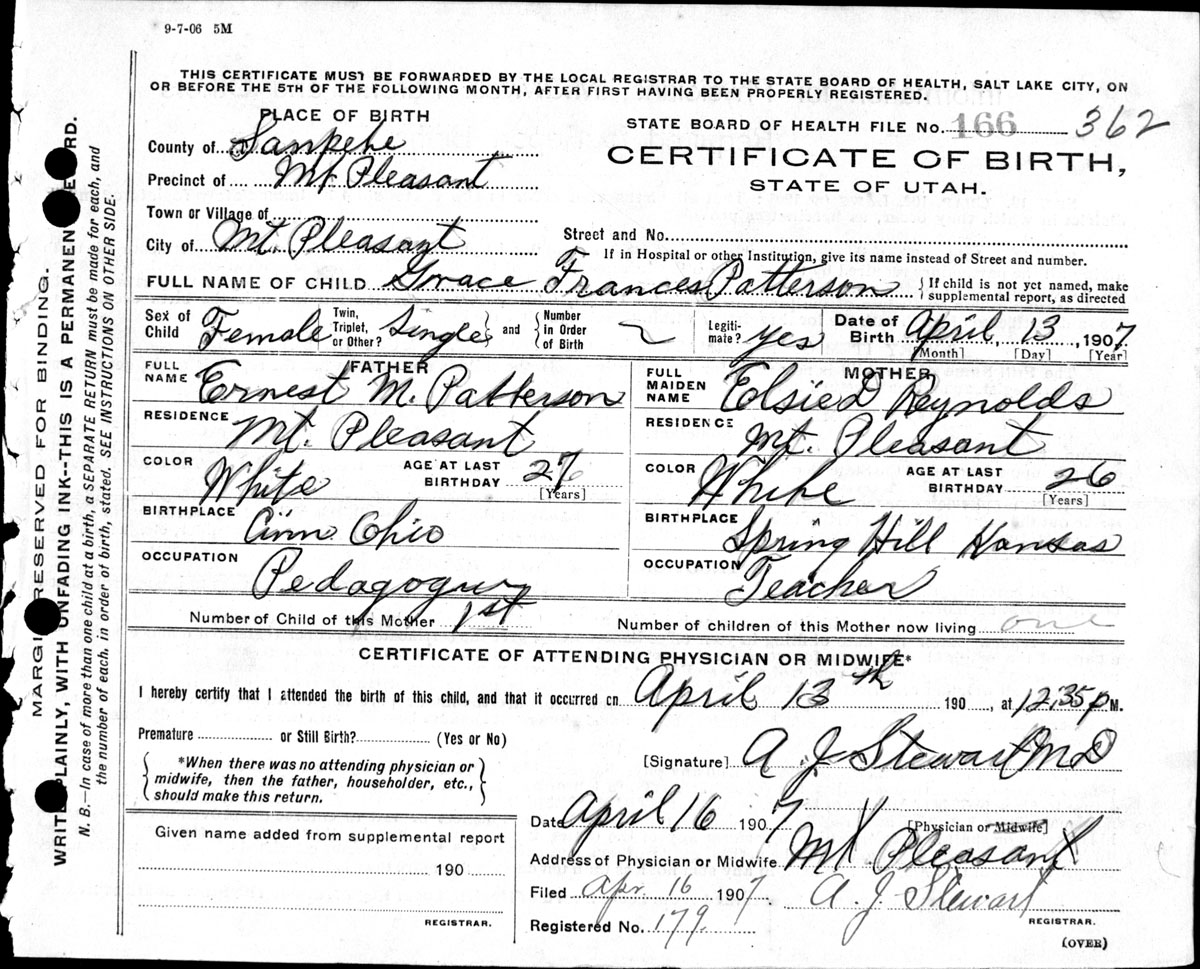 9-7-06 5M
THIS CERTIFICATE MUST BE FORWARDED BY THE LOCAL REGISTRAR TO THE STATE BOARD OF HEALTH, SALT LAKE CITY, ON
OR BEFORE THE 5TH OF THE FOLLOWING MONTH, AFTER FIRST HAVING BEEN PROPERLY REGISTERED.
PLACE OF BIRTH
County of Sanpete
Precinct of Mt Pleasant
Town or Village of
City of Mt. Pleasant
STATE BOARD OF HEALTH FILE No. 166 362
CERTIFICATE OF BIRTH,
STATE OF UTAH.
Street and No.
If in Hospital or other Institution, give its name instead of Street and number.
FULL NAME OF CHILD Grace Frances Patterson { If child is not yet named, make
supplemental report, as directed
Sex of Child Female Twin, Triplet, or Other? Single and Number in Order of Birth Legitimate? yes Date of Birth April, 13, 1907
[Month] [Day] [Year]
FATHER
FULL NAME Ernest M. Patterson
RESIDENCE Mt. Pleasant
COLOR White AGE AT LAST BIRTHDAY 27
[Years]
BIRTHPLACE Ohio
OCCUPATION
MOTHER
FULL MAIDEN NAME Elsie D Reynolds
RESIDENCE Mt. Pleasant
COLOR White AGE AT LAST BIRTHDAY 26
[Years]
BIRTHPLACE Spring Hill Kansas
OCCUPATION Teacher
Number of Child of this Mother 1st Number of children of this Mother now living one
CERTIFICATE OF ATTENDING PHYSICIAN OR MIDWIFE*
I hereby certify that I attended the birth of this child, and that it occurred on April 13th 190 , at 12,35 p M.
Premature or Still Birth? (Yes or No)
{ *When there was no attending physician or
midwife, then the father, householder, etc.,
should make this return. }
[Signature] A J Stewart MD
[Physician or Midwife]
Date April 16 1907
Address of Physician or Midwife Mt Pleasant
Filed Apr. 16 1907 A. J. Stewart
REGISTRAR.
Registered No. 179.
Given name added from supplemental report
190
REGISTRAR.
(OVER)
MARGIN RESERVED FOR BINDING.
WRITE PLAINLY, WITH UNFADING INK--THIS IS A PERMANENT RECORD.
N. B.—In case of more than one child at a birth, a SEPARATE RETURN must be made for each, and
the number of each, in order of birth, stated. SEE INSTRUCTIONS ON OTHER SIDE.